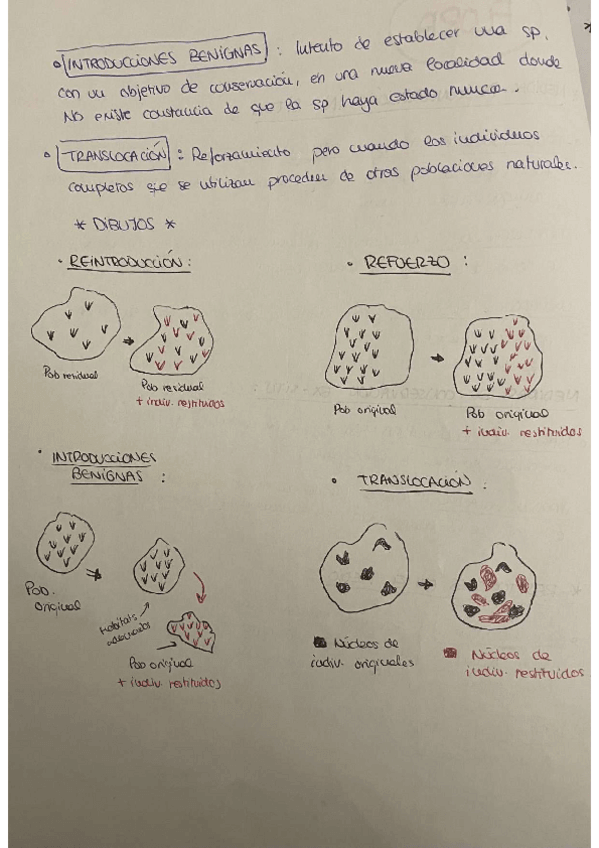 INTRODUCCIONES BENIGNAS : Intento de establecer una sp,
con un objetivo de conservación, en una nueva localidad donde
NO existe constancia de que la sp haya estado nunca.
TRANSLOCACIÓN : Reforzamiento pero cuando los individuos
completos que se utilizan proceden de otras poblaciones naturales.
* DIBUJOS *
· REINTRODUCCIÓN :
Pob residual
Pob residual
+ indiv. restituidos
· REFUERZO :
Pob original
Pob original
+ indiv. restituidos
· INTRODUCCIONES
BENIGNAS :
Pob.
original
Hábitats
adecuados
Pob original
+ indiv. restituidos
· TRANSLOCACIÓN :
Núcleos de
indiv. originales
Núcleos de
indiv. restituidos